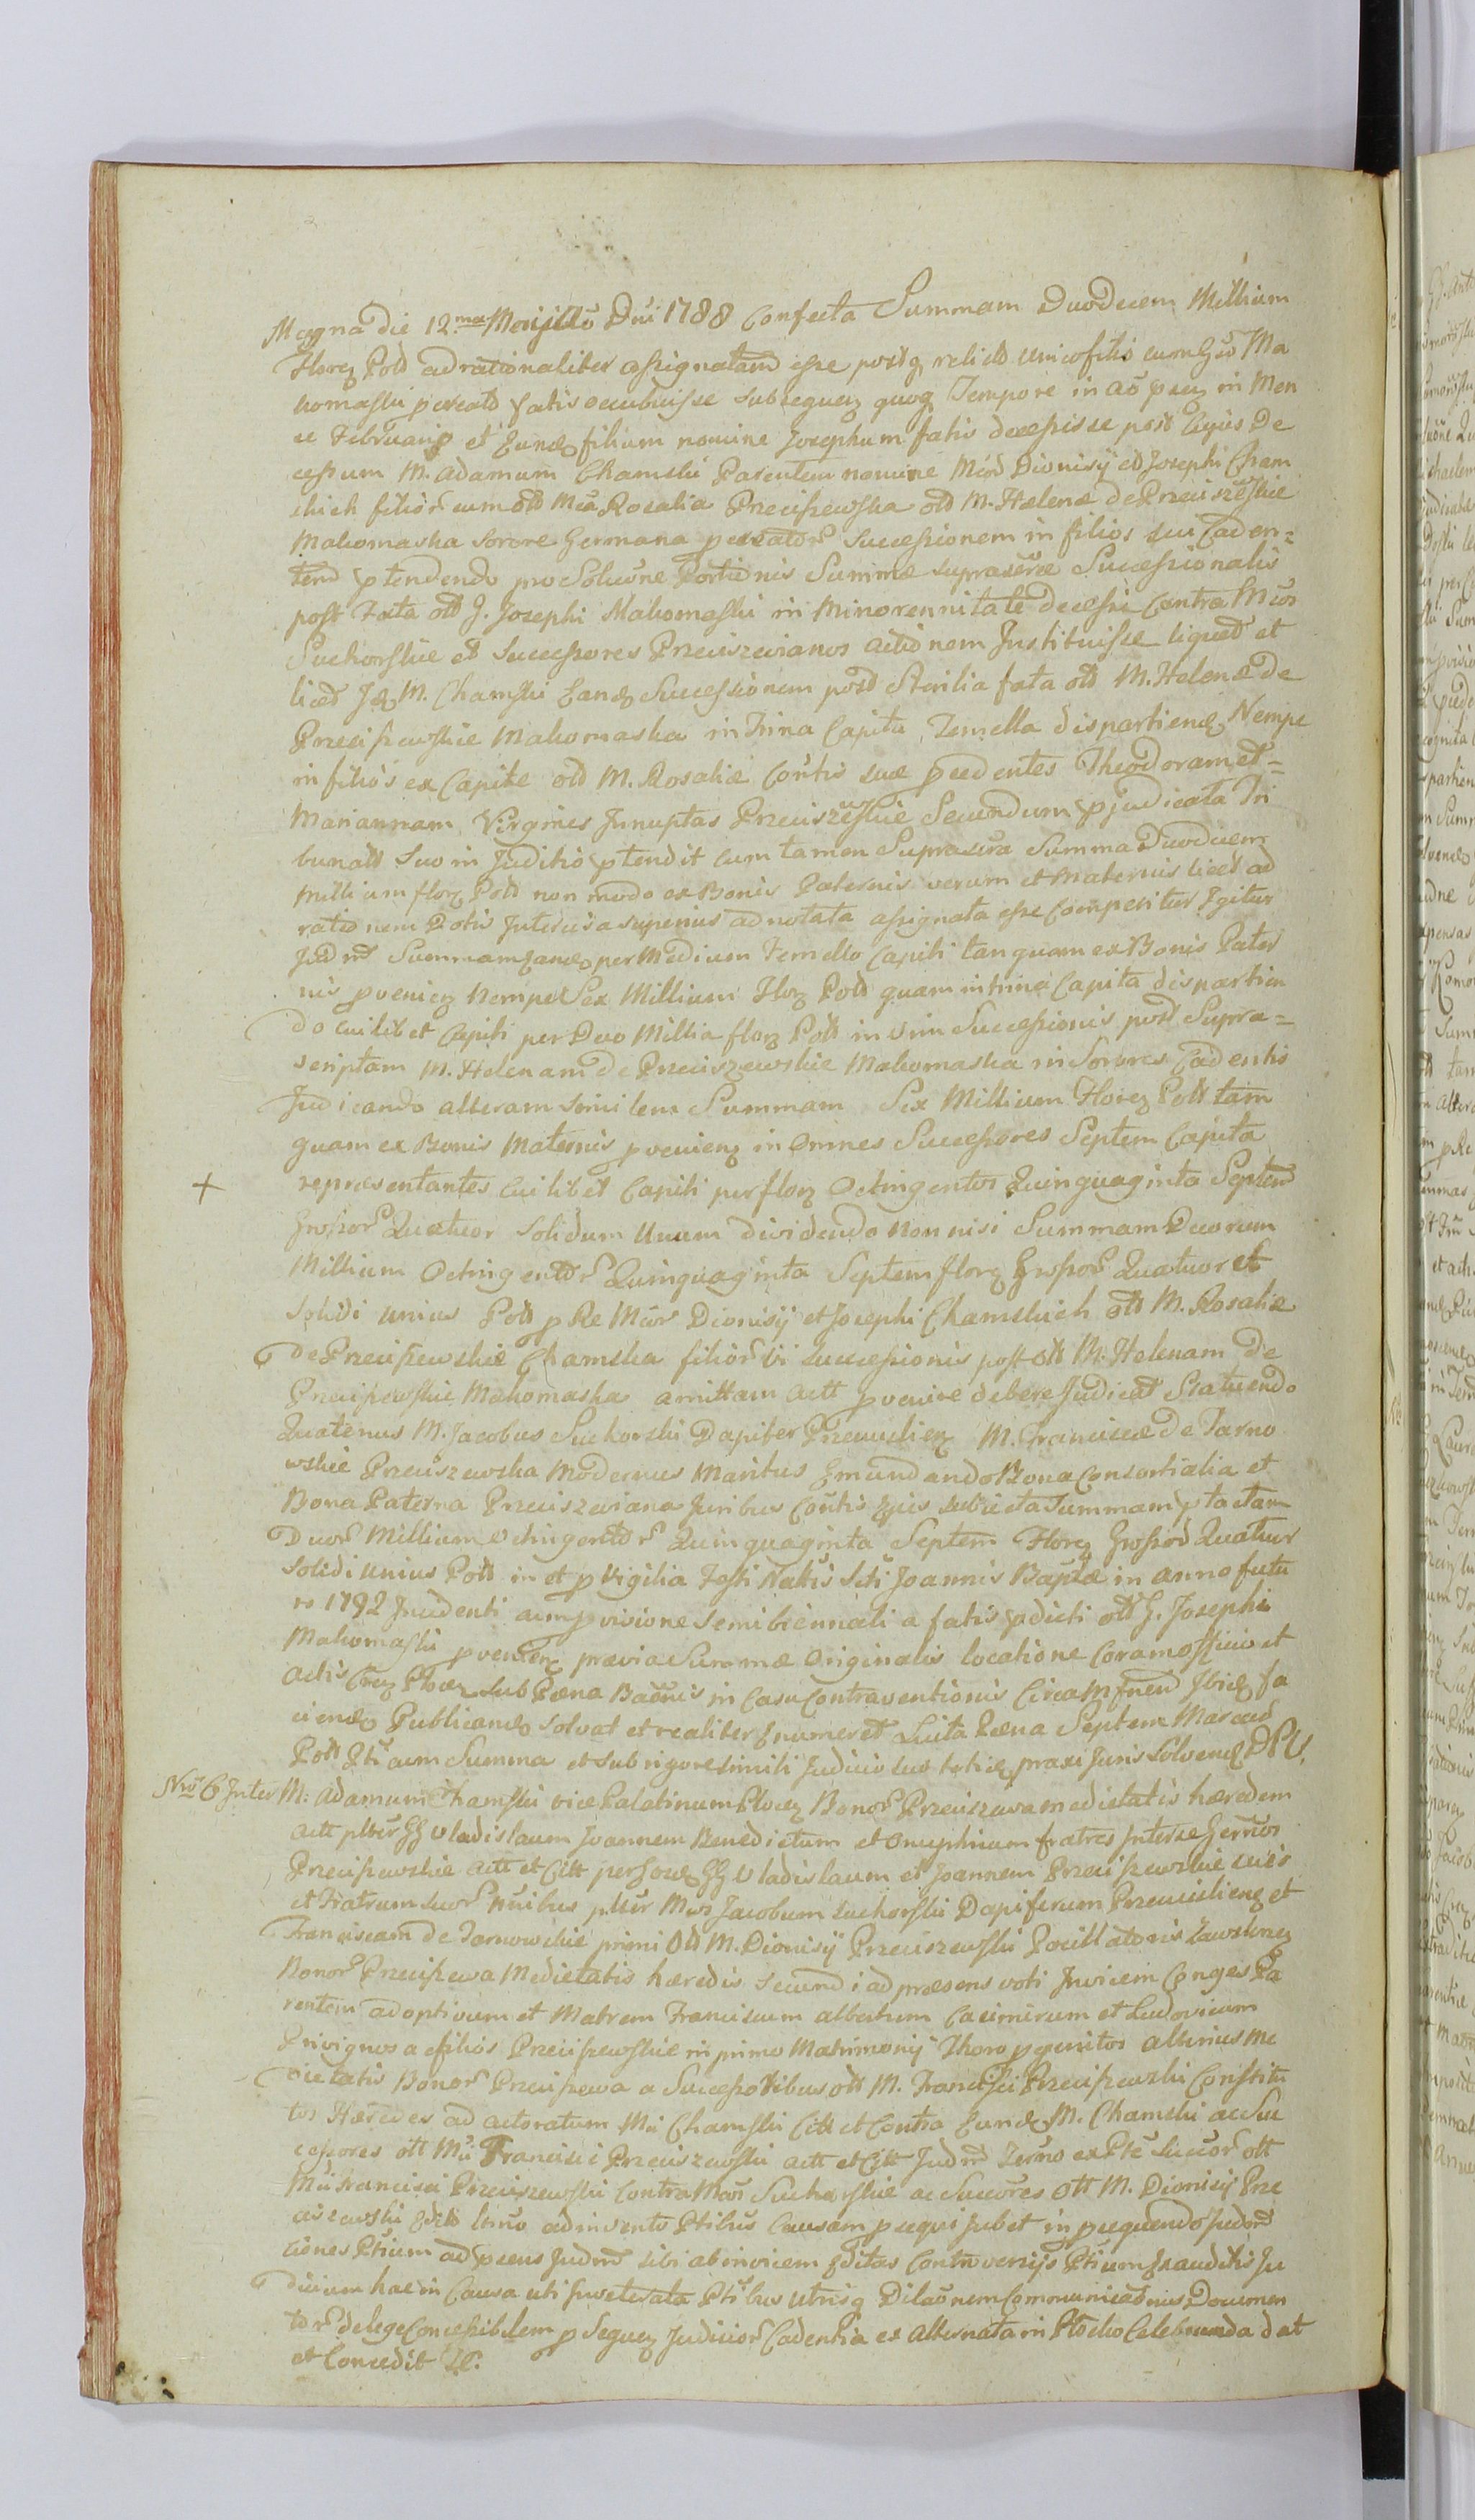 Magna die 12ma Maij Ao Dni 1788 Confecta Summam Duodecem Millium
Florz Poll ad rationaliter assignatam esse postq relicto unico filio cum Gso Ma
komaski pcreato fatis occubuisse subsequenz quoq Tempore in ao psenz in Men
se Februario et Eundz filium nomine Josephum fatis decessisse post Cujus De
cessum M. Adamum Chamski Parentem nomine Mior Dionisij et Josephi Cham
skich filior cum olt Mca Rosalia Preciszewska olt M. Helenæ de Preciszewskie
Makomaska Sorore Germana pcreator Successionem in filios sui Caden=
tem ptendendo pro Solutione Portionis Summæ supraserae Successionalis
post Fata olt G. Josephi Makomaski in Minorennitate decessi Contra Mcos
Suchorskie et Successores Preciszevianos actionem Instituisse liquet et
licet Jdz M. Chamski Eandz Successionem post Sterilia fata olt M. Helenæ de
Preciszewskie Makomaska in Trina Capita Temella dispartiendz Nempe
in filios ex Capite olt M. Rosaliæ Contis suæ pcedentes Theodoram et=
Mariannam Virgines Innuptas Preciszewskie Secundum pjudicata Tri
bunalis suo in Juditio ptendit cum tamen Suprascra Summa Duodecem
Millium florz Poll non modo ex Bonis Paternis verum et Maternis licet ad
rationem Dotis Intercisa superius adnotata assignata esse Comperitur Igitur
Judm Summam Eandz per Medium Femello Capiti tanquam ex Bonis Pater
nis pvenienz Nempe Sex Millium Florz Poll quam in trina Capita dispartien
do Cuilibet Capiti per Duo Millia florz Poll in Vim Successionis post Supra=
scriptam M. Helenam de Preciszewskie Makomaska in Sorores Cadentis
Judicando alteram similem Summam Sex Millium Florez Poll tam
quam ex Bonis Maternis pvenienz in Omnes Successores Septem Capita
+ repræsentantes Cuilibet Capiti per florz Octingentos Quinquaginta Septem
Grossor Quatuor Solidum Unum dividendo non nisi Summam Duorum
Millium Octingentor Quinquaginta Septem florz Grossor Quatuor et
Solidi unius Poll p Re Mcor Dionisij et Josephi Chamskich olt M. Rosaliæ
de Preciszewskie Chamska filior vi Successionis post olt M. Helenam de
Preciszewskie Makomaska amittam actt pvenire debere Judicat Statuendo
Quatenus M. Jacobus Suchorski Dapifer Przemislienz M. Franciscæ de Tarno
wskie Preciszewska Modernus Maritus Emundando Bona Consortialia et
Bona Paterna Preciszeviana Juribus Contis Ejus subiecta Summam ptactam
Duor Millium Octingentor Quinquaginta Septem Florz Grossor Quatuor
Solidi Unius Poll in et p Vigilia Festi Natis Scti Joannis Baptæ in anno futu
ro 1792 Incidenti cum pvisione Semibiennali a fatis pdicti olt G. Josephi
Makomaski pvenienz prævia Summæ Originalis locatione Coram officio et
actis Crenz Plocen sub Pœna Banis in Casu Contraventionis Circa Mfnem Ibidz fa
ciendz Publicandz solvat et realiter Enumeret Luita Pœna Septem Marcar
Poll Pti cum Summa et sub rigore simili Judicio suo totiez praxi Juris Solvendz DPV.
Nro 6 Inter M: Adamum Chamski vice Palatinum Plocenz Bonor Preciszewa medietatis hæredem
actt plter GG Vladislaum Joannem Benedictum et Onuphrium fratres Inter se Gernos
Preciszewskie actt et Citt per Gose GG Vladislaum et Joannem Preciszewskie suis
et Fratrum suor Nnibus plter Mcos Jacobum Suchorski Dapiferum Przemislienz et
Franciscam de Tarnowskie primi Olt M. Dionisij Preciszewski Pocillatoris Zawskrenz
Bonor Preciszewa Medietatis hæredis Secundi ad præsens voti Invicem Conges Pa
rentem adoptivum et Matrem Franciscum Albertum Casimirum et Ludovicum
Privignos a filios Preciszewskie in primo Matrimonij Thoro pgenitos alterius Me
dietatis Bonor Preciszewa a Successoribus olt M. Francisci Preciszewski Constitu
tos Hæredes ad actoratum Mci Chamski Citt et Contra Eundz M. Chamski ac Suc
cessores olt Mci Francisci Preciszewski actt et Citt Judm Terrno ex Pte Succor olt
Mci Francisci Preciszewski Contra Mcos Suchorskie ac Succores Olt M. Dionisij Prze
ciszewski Edto Cnno adinvento Ptibus Causam psequi Jubet in psequendo Judm
tiones Ptium ad psens Judm sibi ab invicem Editas Controversijs Ptium Exauditis Ju
dicium hac in Causa uti Inveterata Ptibus utrisq Dilationem Communicationis Documen
tor de lege Concessibilem p Sequenz Judicior Cadentia ex Alternata in Plocko Celebranda dat
et Concedit